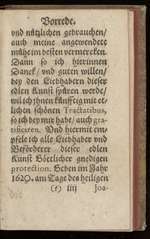 Vorrede.
vnd nützlichen gebrauchen/
auch meine angewendete
mühe im besten vermercken.
Dann so ich hierinnen
Danck/ vnd guten willen/
bey den Liebhabern dieser
edlen Kunst spüren werde/
wil ich jhnen künfftig mit et-
lichen schönen Tractatibus,
so ich bey mir habe/ auch gra-
tificiren. Vnd hiermit em-
pfele ich alle Liebhaber vnd
Beförderer dieser edlen
Kunst Göttlicher gnedigen
protection. Geben im Jahr
1620. am Tage des heiligen
iiij Joa-